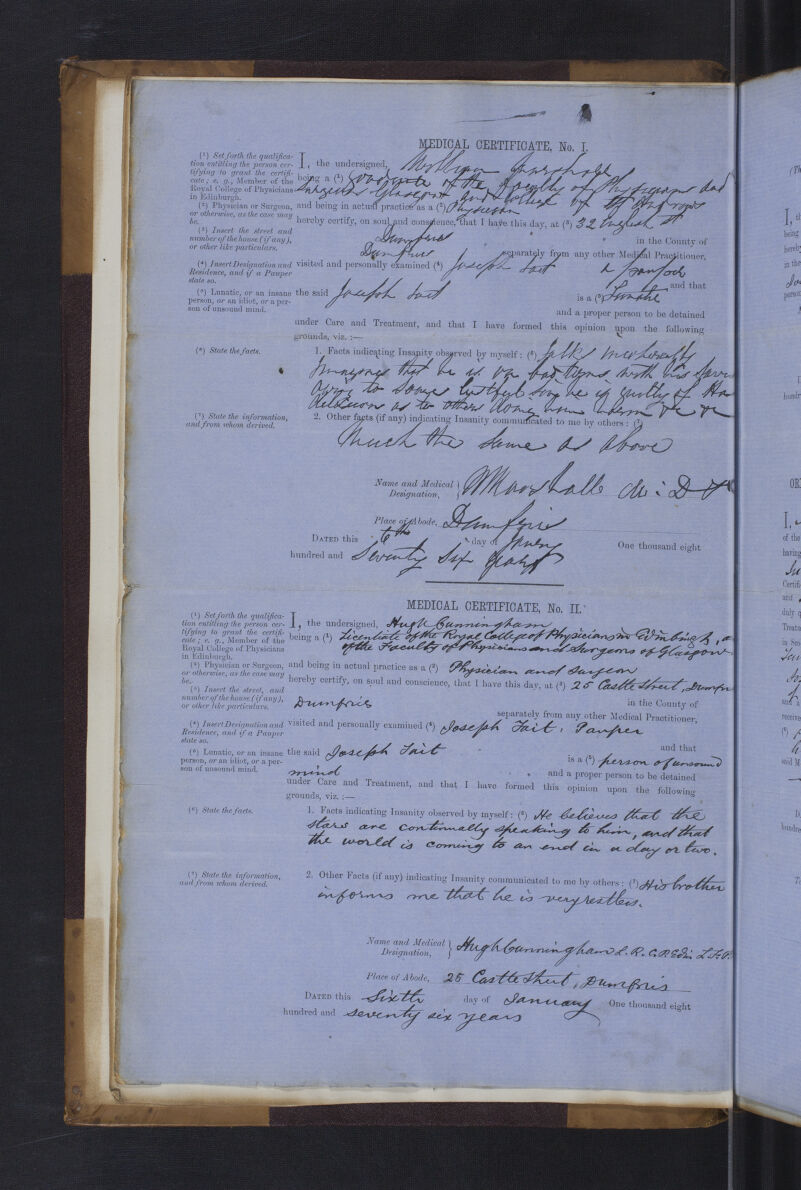 MEDICAL CERTIFICATE, No. I.
(¹) Set forth the qualifica-
tion entitling the person cer-
tifying to grant the certifi-
cate; e. g., Member of the
Royal College of Physicians
in Edinburgh.
(²) Physician or Surgeon,
or otherwise, as the case may
be.
(³) Insert the street and
number of the house (if any),
or other like particulars.
(⁴) Insert Designation and
Residence, and if a Pauper
state so.
(⁵) Lunatic, or an insane
person, or an idiot, or a per-
son of unsound mind.
(⁶) State the facts.
(⁷) State the information,
and from whom derived.
I, the undersigned, William Marshall
being a (¹) Graduate of the Faculty of Physicians and
Surgeons Glasgow and College of St Andrews
and being in actual practice as a (²) Physician
hereby certify, on soul and conscience, that I have this day, at (³) 32 English St
Dumfries in the County of
Dumfries separately from any other Medical Practitioner,
visited and personally examined (⁴) Joseph Tait a pauper
and that
the said Joseph Tait is a (⁵) Lunatic
and a proper person to be detained
under Care and Treatment, and that I have formed this opinion upon the following
grounds, viz. :—
1. Facts indicating Insanity observed by myself : (⁶) Talks incoherently
Imagines that he is on bad terms with his
owing to some lustful he is guilty of
delusions as to others
2. Other facts (if any) indicating Insanity communicated to me by others : (⁷)
Much the same as above
Name and Medical Designation, W Marshall M: D
Place of Abode, Dumfries
DATED this 6th day of January One thousand eight
hundred and Seventy Six years
MEDICAL CERTIFICATE, No. II.
(¹) Set forth the qualifica-
tion entitling the person cer-
tifying to grant the certifi-
cate; e. g., Member of the
Royal College of Physicians
in Edinburgh.
(²) Physician or Surgeon,
or otherwise, as the case may
be.
(³) Insert the street, and
number of the house (if any),
or other like particulars.
(⁴) Insert Designation and
Residence, and if a Pauper
state so.
(⁵) Lunatic, or an insane
person, or an idiot, or a per-
son of unsound mind.
(⁶) State the facts.
(⁷) State the information,
and from whom derived.
I, the undersigned, Hugh Cunningham
being a (¹) Licentiate of the Royal College of Physicians in Edinburgh, a
of the Faculty of Physicians and Surgeons of Glasgow
and being in actual practice as a (²) Physician and Surgeon
hereby certify, on soul and conscience, that I have this day, at (³) 25 Castle Street, Dumfri
Dumfries in the County of
separately from any other Medical Practitioner,
visited and personally examined (⁴) Joseph Tait, Pauper
and that
the said Joseph Tait is a (⁵) person of unsound
mind and a proper person to be detained
under Care and Treatment, and that I have formed this opinion upon the following
grounds, viz. :—
1. Facts indicating Insanity observed by myself : (⁶) He believes that the
stars are continually speaking to him, and that
the world is coming to an end in a day or two.
2. Other Facts (if any) indicating Insanity communicated to me by others : (⁷) His brother
informs me that he is very restless.
Name and Medical Designation, Hugh Cunningham L. R. C. P. Edin L. F. P.
Place of Abode, 25 Castle Street, Dumfries
DATED this Sixth day of January One thousand eight
hundred and seventy six years